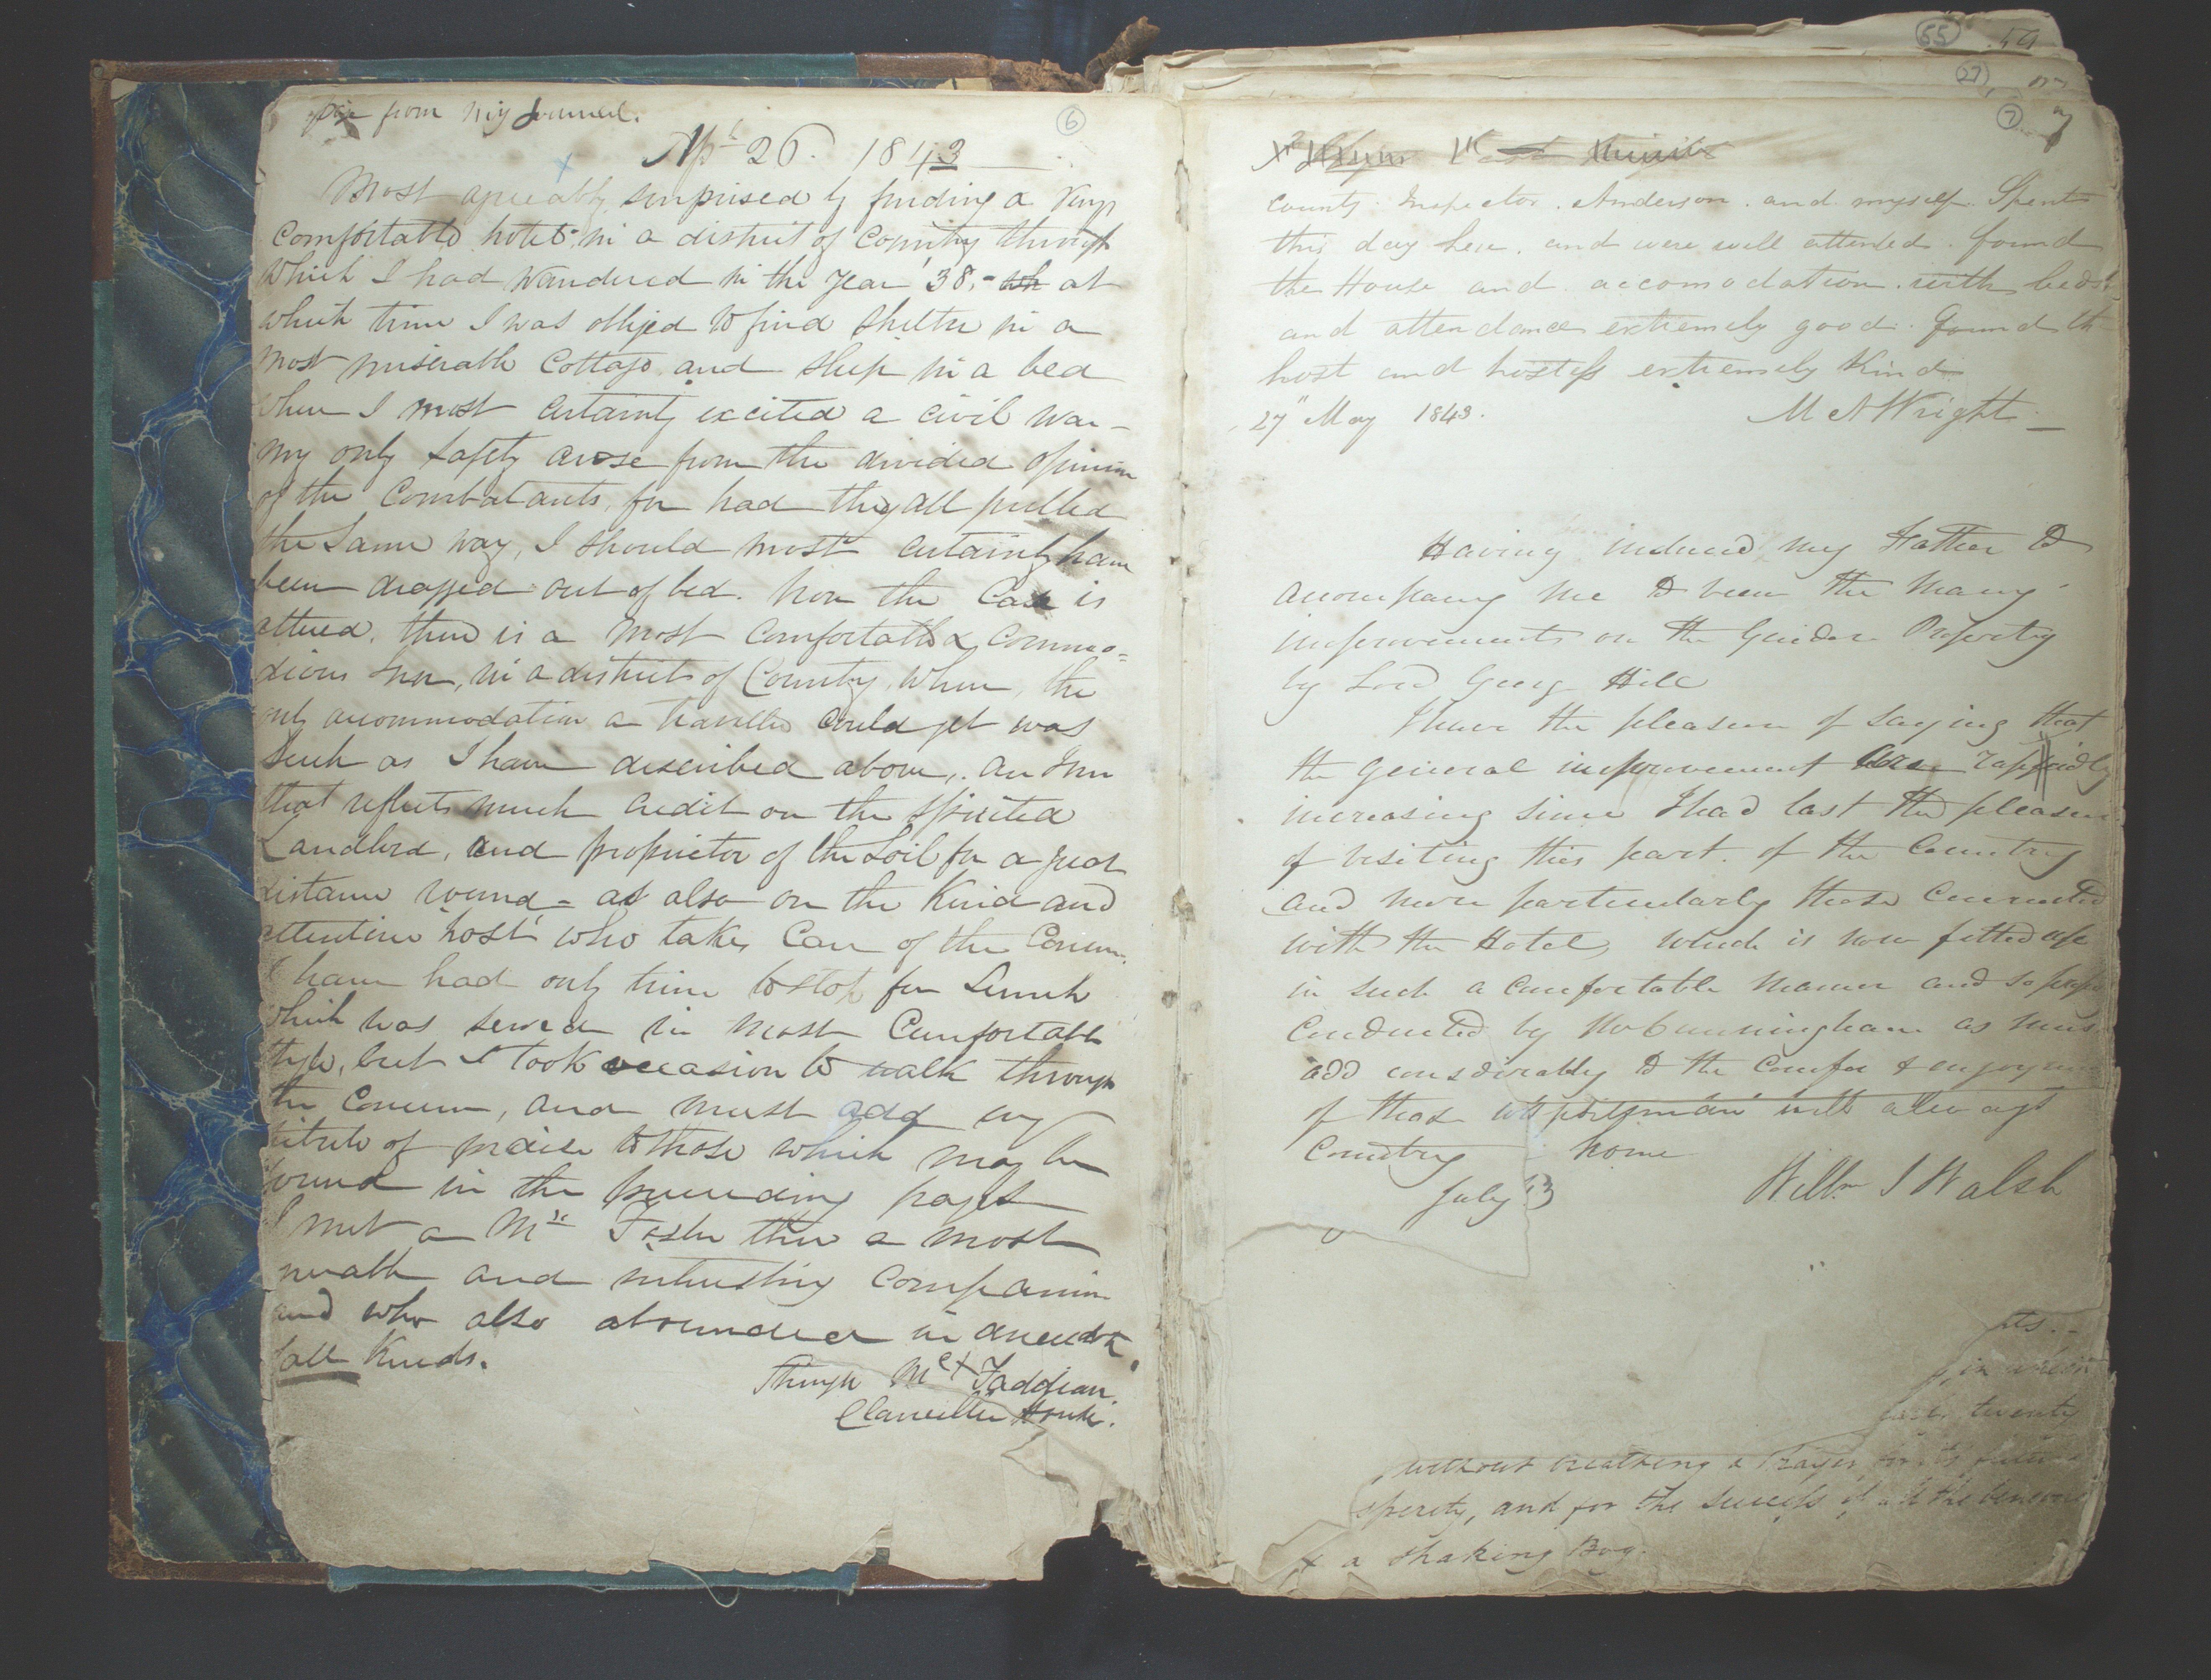 from my Journal.
6
Apl 26. 1843
Most agreeably surprised by finding a very
Comfortable hotel in a district of Country through
which I had wandered in the year '38, - wh at
which time I was obliged to find shelter in a
most miserable Cottage and sleep in a bed
where I most certainly excited a civil war -
my only safety arose from the divided opinion
of the Combatants, for had they all pulled
the same way, I should most certainly have
been dragged out of bed. Now the Case is
altered, there is a most Comfortable & Commo=
dious Inn, in a district of Country, where, the
only accommodation a traveller could get was
such as I have described above, an Inn
that reflects much credit on the spirited
Landlord, and proprietor of the soil for a great
distance round - as also on the Kind and
attentive 'host' who takes Care of the Concern.
I have had only time to stop for Lunch
which was served in most Comfortable
style, but I took occasion to walk through
the Concern, and must add my
tribute of praise to those which may be
found in the preceding pages
I met a Mr Foster there a most
and interesting Companion
and who also abounded in anecdote
of all Kinds.
55
27
7
County Inspector Anderson and myself Spent
this day here. and were well attended. found
the House and accomodation with beds
and attendance extremely good. found the
host and hostess extremely Kind
27" May 1843. M A Wright
Having induced my Father to
accompany me to view the many
improvements on the Guidore Property
by Lord Georg Hill
I have the pleasure of saying that
the general improvement are rappidly
increasing since I had last the pleasure
of visiting this part of the Country
and more particularly those Connected
with the Hotel, which is now fitted up
in such a comfortable manner and so
Conducted by Mr Cunningham as must
add considerably to the Comfor & enjoyment
of those
Country home
July 13 Willm J Walsh
twenty
without breathing a Prayer for its future
sperity, and for the success of all the
a shaking Bog.